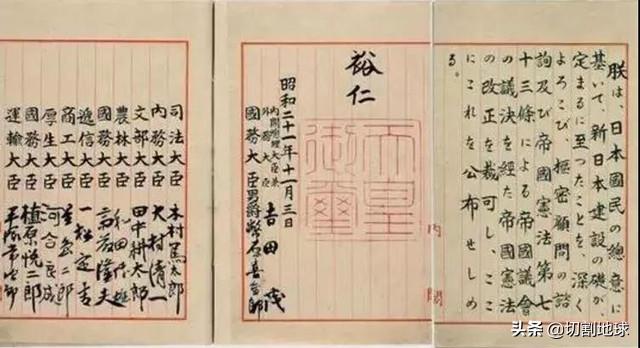 朕は、日本國民の總意に
基いて、新日本建設の礎が
定まるに至つたことを、深く
よろこび、樞密顧問の諮
詢及び帝國憲法第七
十三條による帝國議會
の議決を経た帝國憲法
の改正を裁可し、ここ
にこれを公布せしめ
る。
内閣
裕仁
天皇
御璽
昭和二十一年十一月三日
内閣總理大臣兼
外務大臣 吉田茂
國務大臣 男爵幣原喜重郎
司法大臣 木村篤太郎
内務大臣 大村清一
文部大臣 田中耕太郎
農林大臣 和田博雄
國務大臣 斎藤隆夫
遞信大臣 一松定吉
商工大臣 星島二郎
厚生大臣 河合良成
國務大臣 植原悦二郎
運輸大臣 平塚常次郎
头条 @切割地球